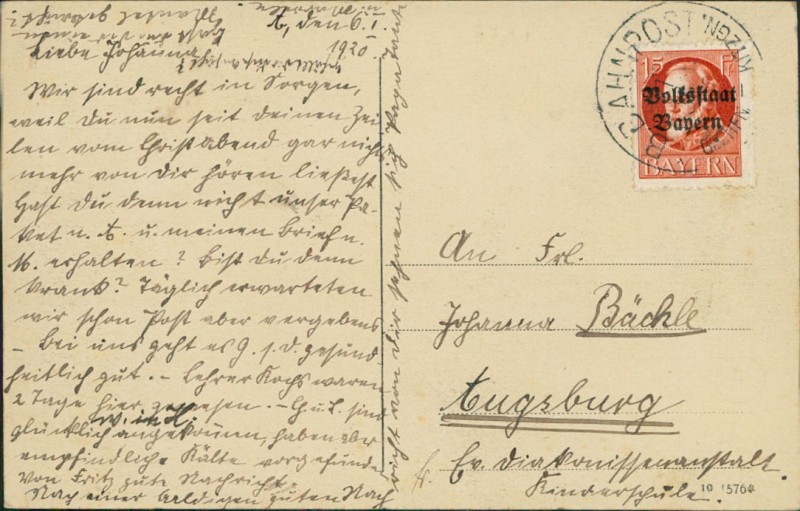 A., den 6.I.
1920.
Liebe Johanna!
Wir sind recht in Sorgen,
weil Du nun seit deinen Zei-
len vom Christabend gar nichts
mehr von dir hören ließest.
Hast Du denn nicht unser Pa-
ket n. A. u. meinen Brief n.
M. erhalten? Bist Du denn
krank? Täglich erwarteten
wir schon Post aber vergebens
- Bei uns geht es G. s. d. gesund
heitlich gut. - Lehrer Kochs waren
2 Tage hier gewesen. - sind
glücklich angekommen, haben aber
empfindliche Kälte vorgefunden
Von Fritz gute Nachricht.
Nach einer baldigen guten Nach
richt von dir sehnen sich
BAHNPOST
15 Pf.
Volksstaat
Bayern
BAYERN
An Frl.
Johanna Bächle
Augsburg
Ev. Diakonissenanstalt.
Kinderschule.